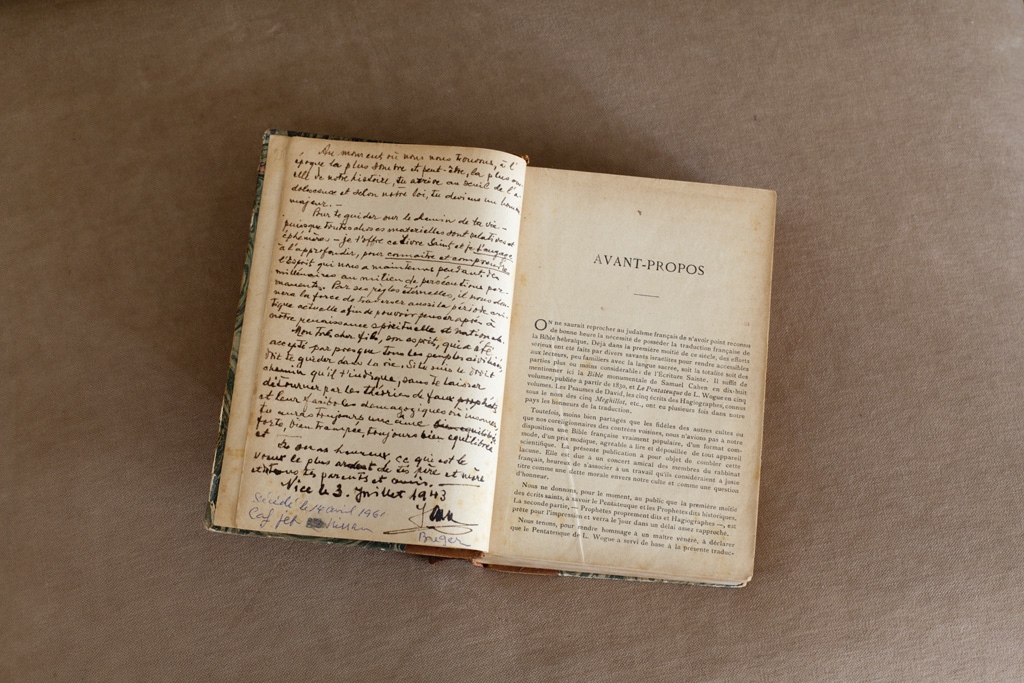 Au moment où nous nous trouvons, à l'
époque la plus sombre et peut-être, la plus cru-
elle de notre histoire, tu arrive au seuil de l'a-
dolescence et selon notre loi, tu deviens un homme
majeur. —
Pour te guider sur le chemin de ta vie —
puisque toutes choses materielles sont relatives et
éphémères — je t'offre ce Livre Saint et je t'engage
à l'approfondir, pour connaitre et comprendre
l'Esprit qui nous a maintenus pendant des
millénaires au milieu de persécutions per-
manentes. Par ses règles éternelles, il nous don-
nera la force de traverser aussi la période cri-
tique actuelle afin de pouvoir penser après à
notre renaissance spirituelle et nationale.
Mon très cher fils, son esprit, qui a été
accepté par presque tous les peuples civilisés,
doit te guider dans la vie. Si tu suis le droit
chemin qu'il t'indique, sans te laisser
détourner par les théories de faux prophètes
et leurs fanatismes démagogiques ou insensés,
tu auras toujours une âme bien equilibrée
forte, bien trempée, toujours bien equilibrée
et
Sois heureux, ce que est le
vœux le plus ardent de tes père et mère
et de tous tes parents et amis. —
Nice le 3. Juillet 1943
Jean
Décédé le 14 avril 1961
Breger
AVANT-PROPOS
ON ne saurait reprocher au judaïsme français de n'avoir point reconnu
de bonne heure la nécesité de posséder la traduction française de
la Bible hébraïque. Déjà dans la première moitié de ce siècle, des efforts
sérieux ont été faits par divers savants israélites pour rendre accessibles
aux lecteurs, peu familiers avec la langue sacrée, soit la totalité soit des
parties plus ou moins considérables de l'Ecriture Sainte. Il suffit de
mentionner ici la Bible monumentale de Samuel Cahen en dix-huit
volumes, publiée à partir de 1830, et Le Pentateuque de L. Wogue en cinq
volumes. Les Psaumes de David, les cinq écrits des Hagiographes, connus
sous le nom des cinq Meghillot, etc., ont eu plusieurs fois dans notre
pays les honneurs de la traduction.
Toutefois, moins bien partagés que les fidèles des autres cultes ou
que nos coreligionnaires des contrées voisines, nous n'avons pas à notre
disposition une Bible française vraiment populaire, d'un format com-
mode, d'un prix modique, agréable à lire et dépouillée de tout appareil
scientifique. La présente publication a pour objet de combler cette
lacune. Elle est due à un concert amical des membres du rabbinat
français, heureux de s'associer à un travail qu'ils considéraient à juste
titre comme une dette morale envers notre culte et comme une question
d'honneur.
Nous ne donnons, pour le moment, au public que la première moitié
des écrits saints, à savoir le Pentateuque et les Prophètes dits historiques.
La seconde partie, — Prophètes proprement dits et Hagiographes —, est
prête pour l'impression et verra le jour dans un délai assez rapproché.
Nous tenons, pour rendre hommage à un maître vénéré, à déclarer
que le Pentateuque de L. Wogue a servi de base à la présente traduc-